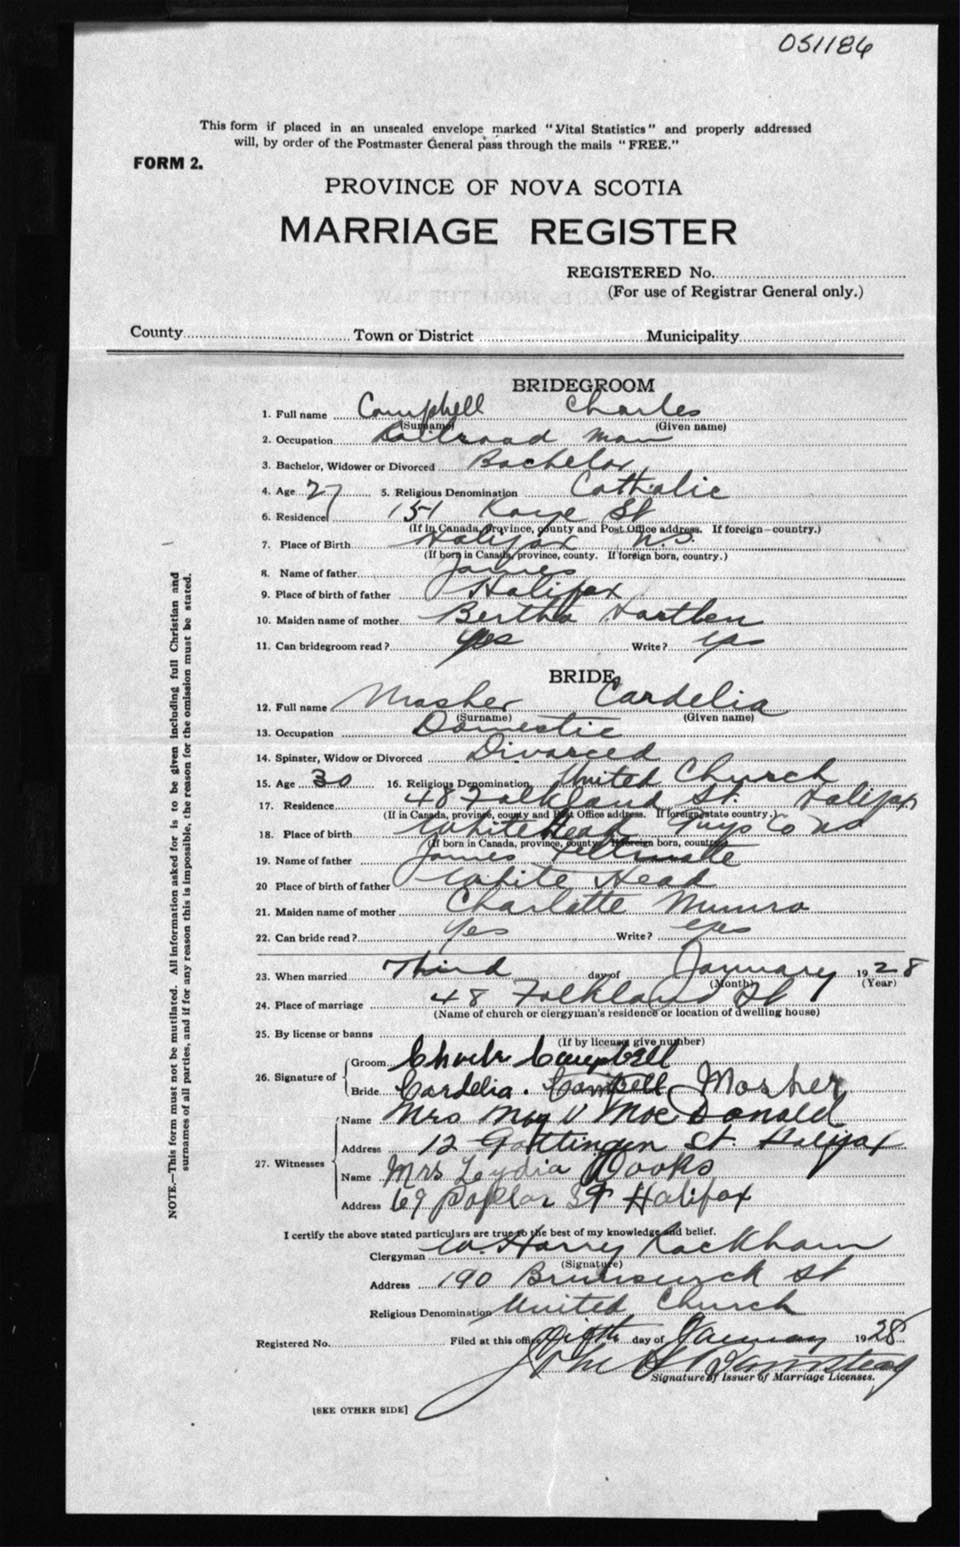 051186
This form if placed in an unsealed envelope marked "Vital Statistics" and properly addressed
will, by order of the Postmaster General pass through the mails "FREE."
FORM 2.
PROVINCE OF NOVA SCOTIA
MARRIAGE REGISTER
REGISTERED No.
(For use of Registrar General only.)
County Town or District Municipality
BRIDEGROOM
1. Full name Campbell Charles
(Surname) (Given name)
2. Occupation Railroad man
3. Bachelor, Widower or Divorced Bachelor
4. Age 27 5. Religious Denomination Catholic
6. Residence 151 Kaye St
(If in Canada, province, county and Post Office address. If foreign—country.)
7. Place of Birth Halifax N.S.
(If born in Canada, province, county. If foreign born, country.)
8. Name of father James
9. Place of birth of father Halifax
10. Maiden name of mother Bertha Hartlen
11. Can bridegroom read? yes Write? yes
BRIDE
12. Full name Mosher Cardelia
(Surname) (Given name)
13. Occupation Domestic
14. Spinster, Widow or Divorced Divorced
15. Age 30 16. Religious Denomination United Church
17. Residence 48 Falkland St. Halifax
(If in Canada, province, county and Post Office address. If foreign state country.)
18. Place of birth White Head Guys Co NS
(If born in Canada, province, county. If foreign born, country)
19. Name of father James
20 Place of birth of father White Head
21. Maiden name of mother Charlotte Munro
22. Can bride read? yes Write? yes
23. When married Third day of January 1928
(Month) (Year)
24. Place of marriage 48 Falkland St
(Name of church or clergyman's residence or location of dwelling house)
25. By license or banns
(If by license give number)
26. Signature of Groom Charles Campbell
Bride Cardelia. Campbell Mosher
27. Witnesses Name Mrs May V MacDonald
Address 12 Gottingen St. Halifax
Name Mrs Lydia Hooks
Address 69 Poplar St Halifax
I certify the above stated particulars are true to the best of my knowledge and belief.
Clergyman W. Harry Rackham
(Signature)
Address 190 Brunswick St
Religious Denomination United Church
Registered No. Filed at this office Fifth day of January 1928
Signature of Issuer of Marriage Licenses.
[SEE OTHER SIDE]
NOTE.—This form must not be mutilated. All information asked for is to be given including full Christian and
surnames of all parties, and if for any reason this is impossible, the reason for the omission must be stated.